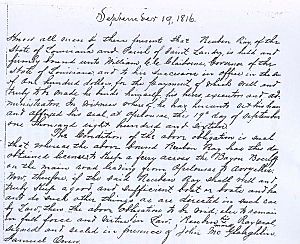 September 19, 1816.
Know all men by these present that Reuben Kay of the
State of Louisiana and Parish of Saint Landry, is held and
firmly bound unto William C.C. Claiborne Governor of the
State of Louisiana, and to his successors in office in the sum
of One hundred dollars, for the payment of which well and
truly to be made he binds himself, his heirs, executors and ad-
ministrators. In Witness whereof he has hereunto set his hand
and affixed his seal at Opelousas this 19th day of September
one thousand eight hundred and sixteen.
The Condition of the above obligation is such
that whereas the above bound Reuben Kay has this day
obtained license to keep a ferry across the Bayou Boeuf
on the main road leading from Opelousas to Avoyelles.
Now, therefore if the said Reuben Kay shall well and
truly keep a good and sufficient boat or boats and
do such other things as are directed in such case
by Law, then the above obligation to be void, else to remain
in full force and virtue.
signed and sealed in presence of John
Samuel